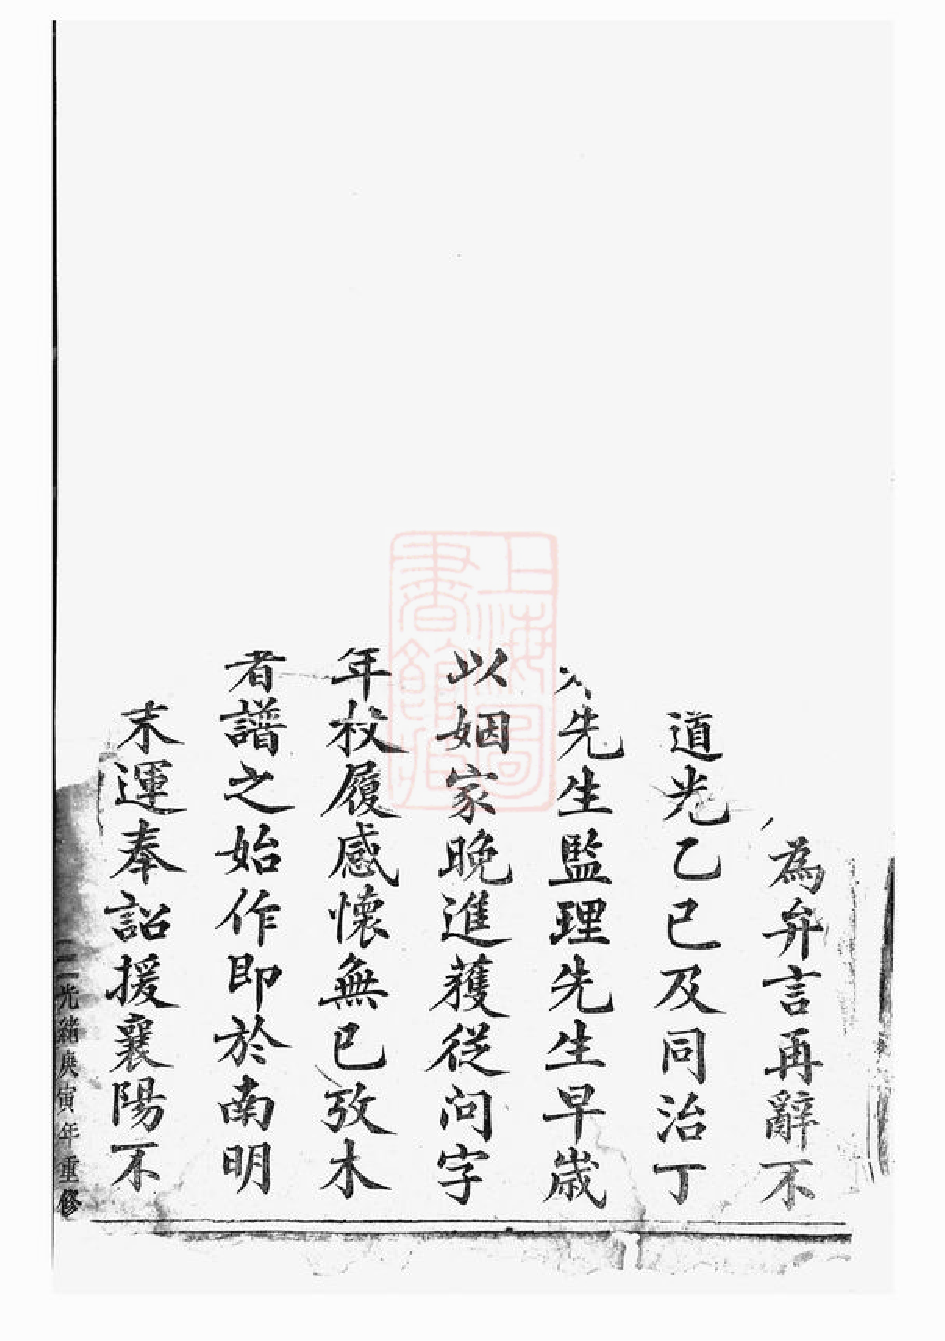 為弁言再辭不
道光乙巳及同治丁
先生監理先生早歲
以姻家晚進獲從问字
年杖履感懷無已攷木
者譜之始作即於南明
末運奉詔援襄陽不
光緒庚寅年重修
上海圖書館藏